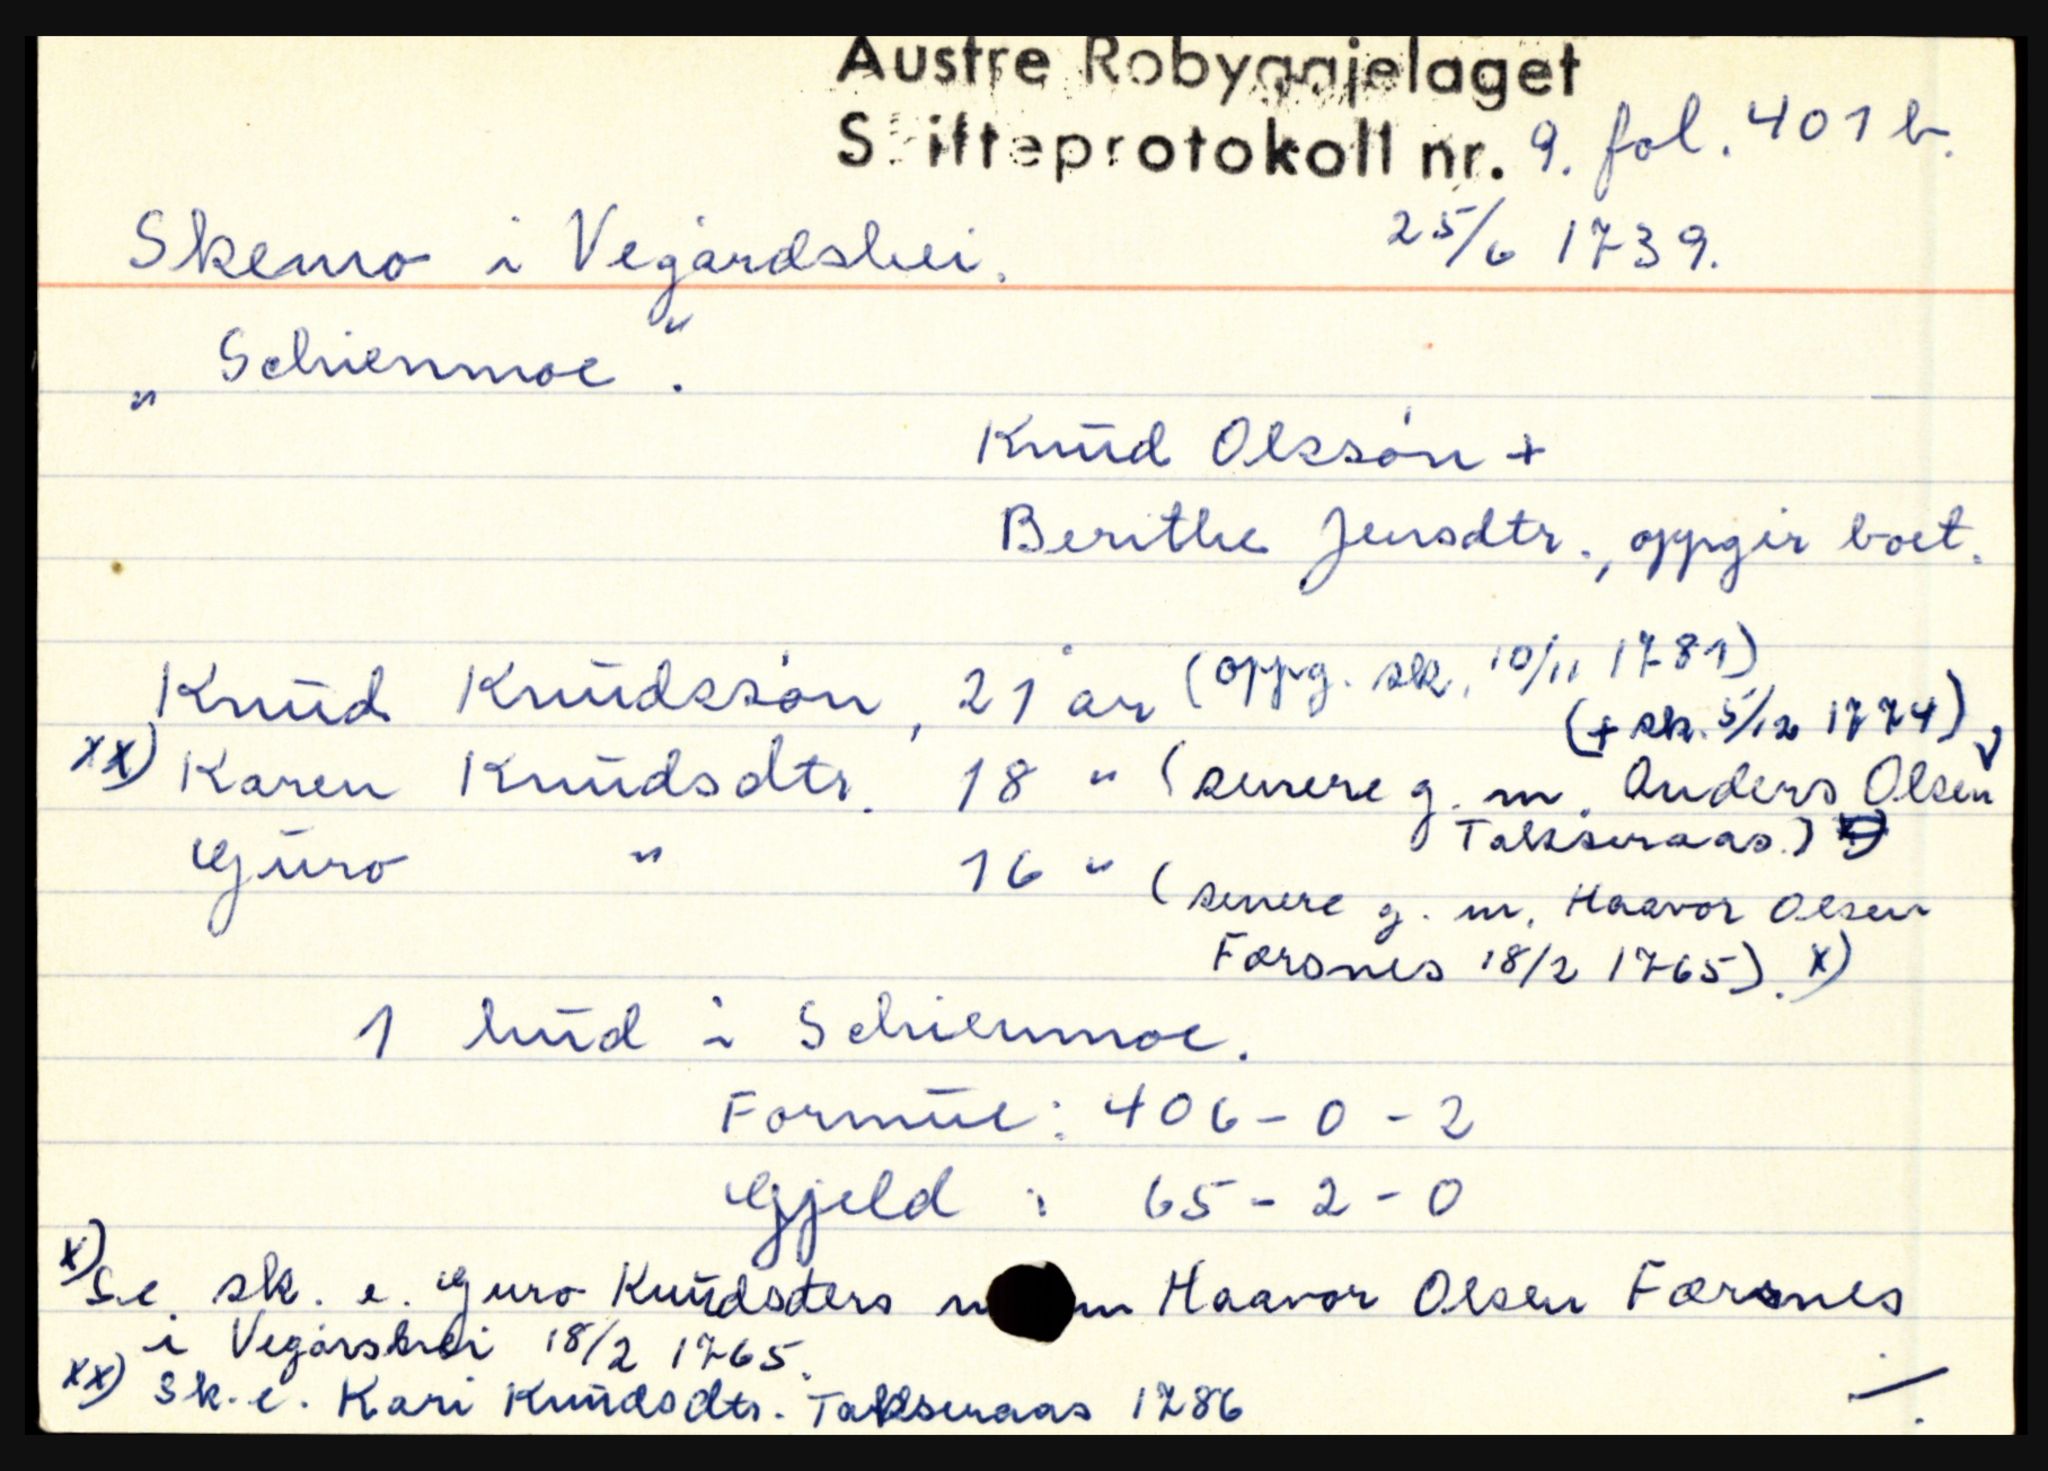 Austre Robyggjelaget
Skifteprotokoll nr. 9. fol. 401 b.
Skemo i Vegårdshei. 25/6 1739.
„Schienmoe".
Knud Olssøn +
Berithe Jensdtr., oppgir boet.
Knud Knudssøn, 21 år (oppg. sk. 10/11 1781)
(+ sk. 5/12 1774)
xx) Karen Knudsdtr. 18 " (senere g. m. Anders Olsen
Takseraas.)
Guro " 16 " (senere g. m. Haavor Olsen
Færsnes 18/2 1765). x)
1 hud i Schienmoe.
Formue: 406-0-2
Gjeld : 65-2-0
x) Se sk. e. Guro Knudsdters Haavor Olsen Færsnes
i Vegårshei 18/2 1765.
xx) Sk. e. Kari Knudsdtr. Takseraas 1786